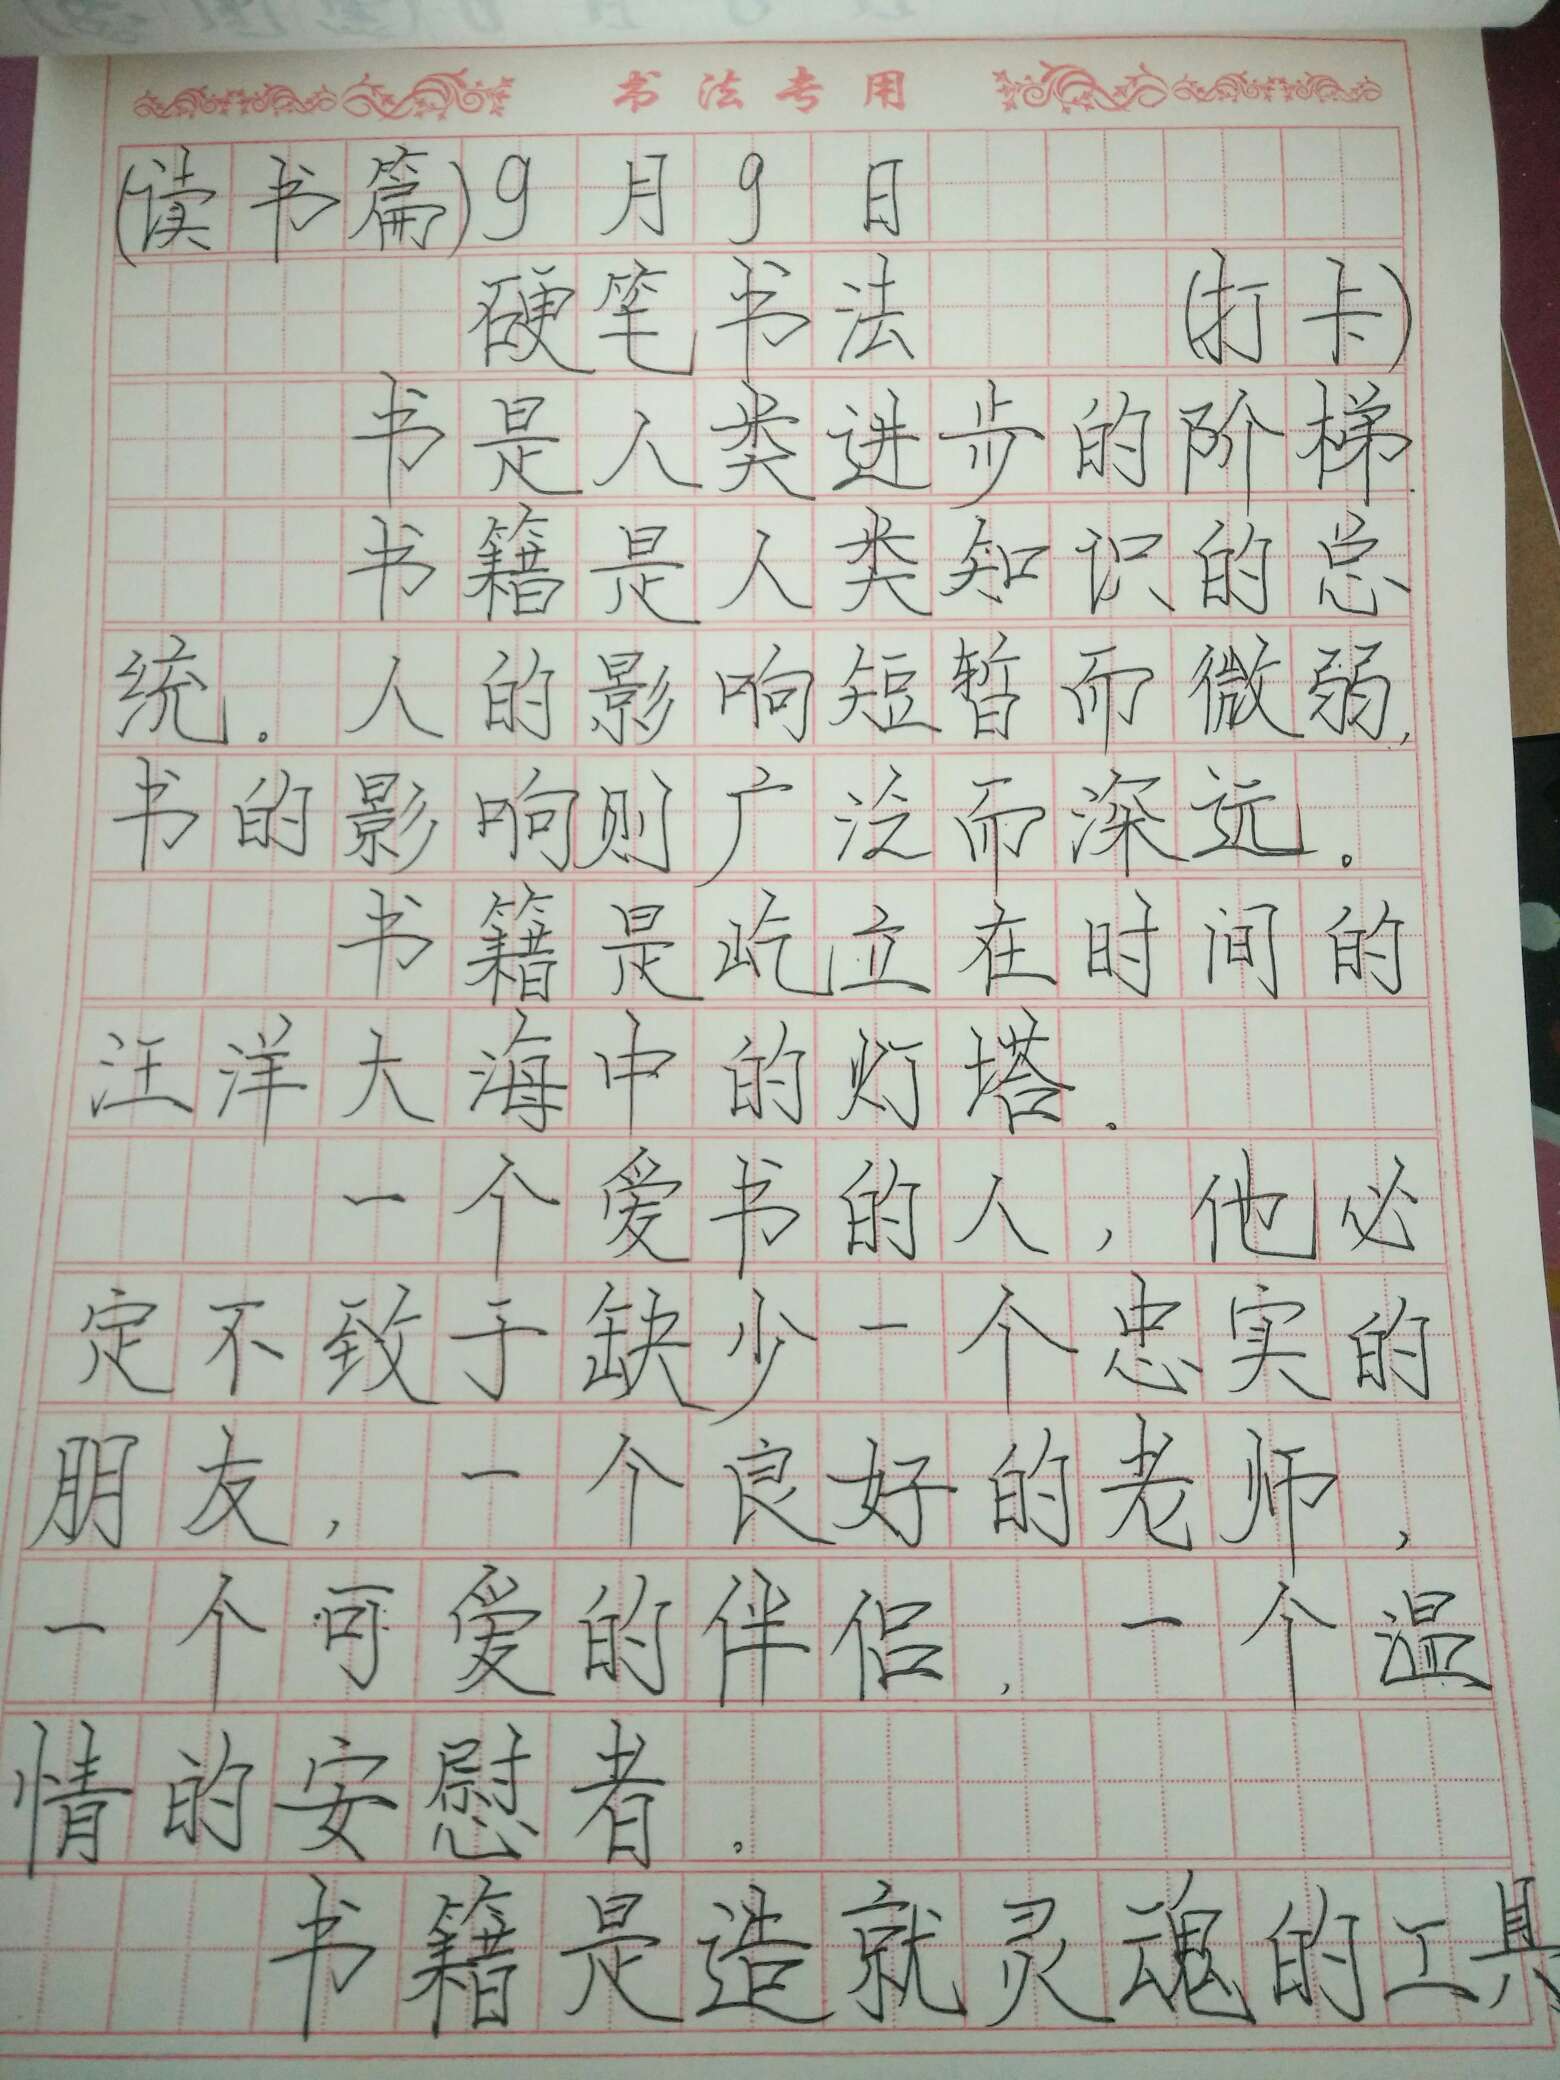 书法专用
(读书篇)9月9日
硬笔书法 (打卡)
书是人类进步的阶梯.
书籍是人类知识的总
统.人的影响短暂而微弱,
书的影响则广泛而深远。
书籍是屹立在时间的
汪洋大海中的灯塔.
一个爱书的人,他必
定不致于缺少一个忠实的
朋友,一个良好的老师,
一个可爱的伴侣,一个温
情的安慰者.
书籍是造就灵魂的工具